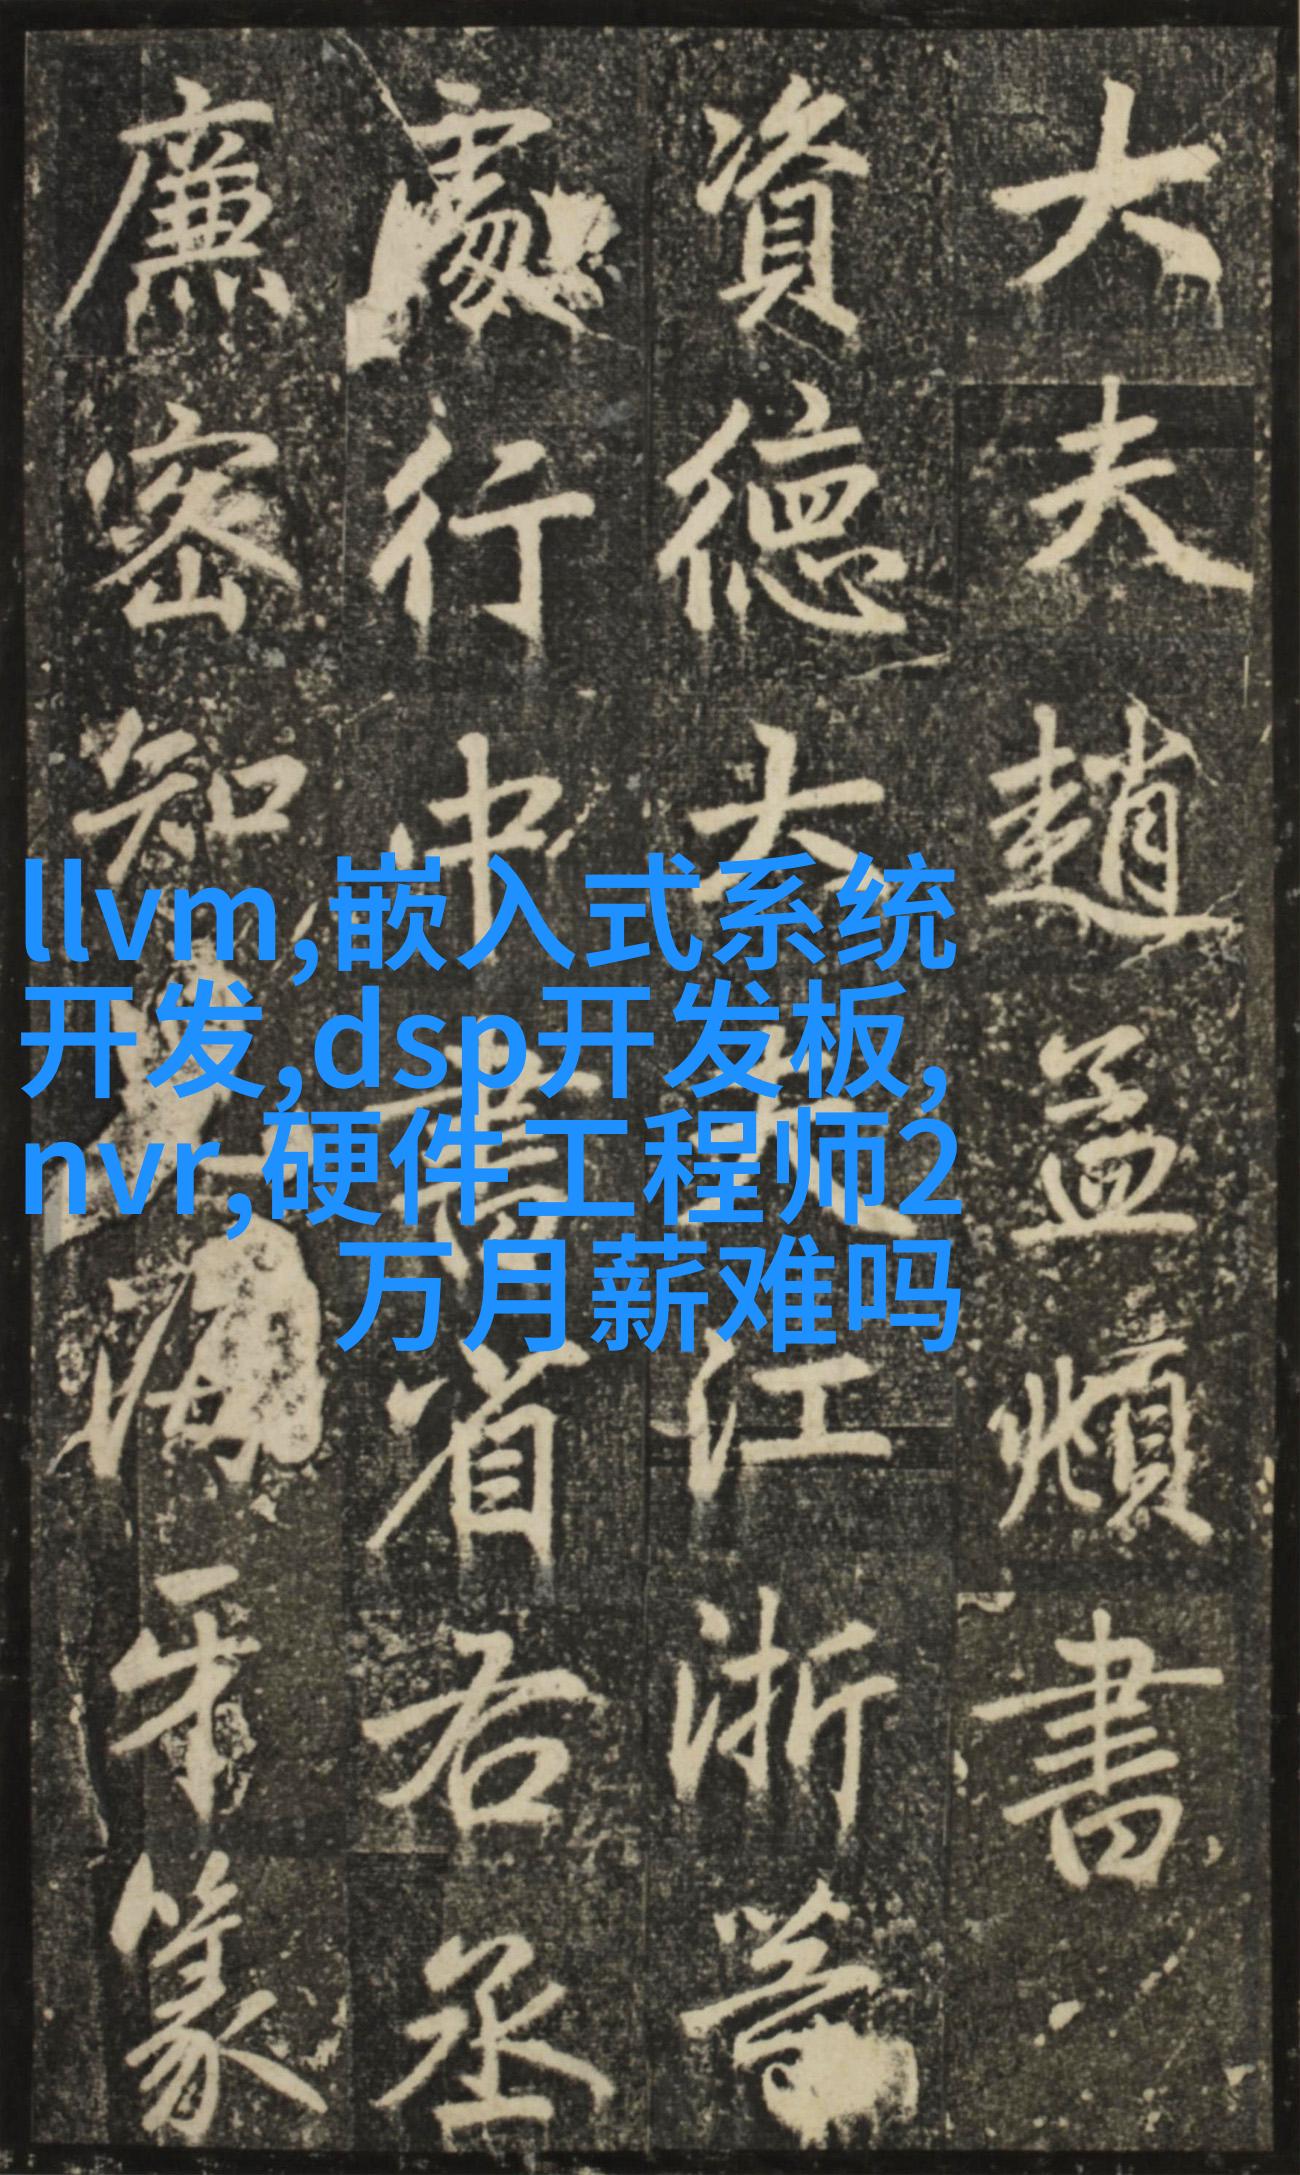 大夫趙孟頫書
資德大夫江浙等
處行中書省右丞
廉密知海牙篆
llvm,嵌入式系统
开发,dsp开发板,
nvr,硬件工程师2
万月薪难吗